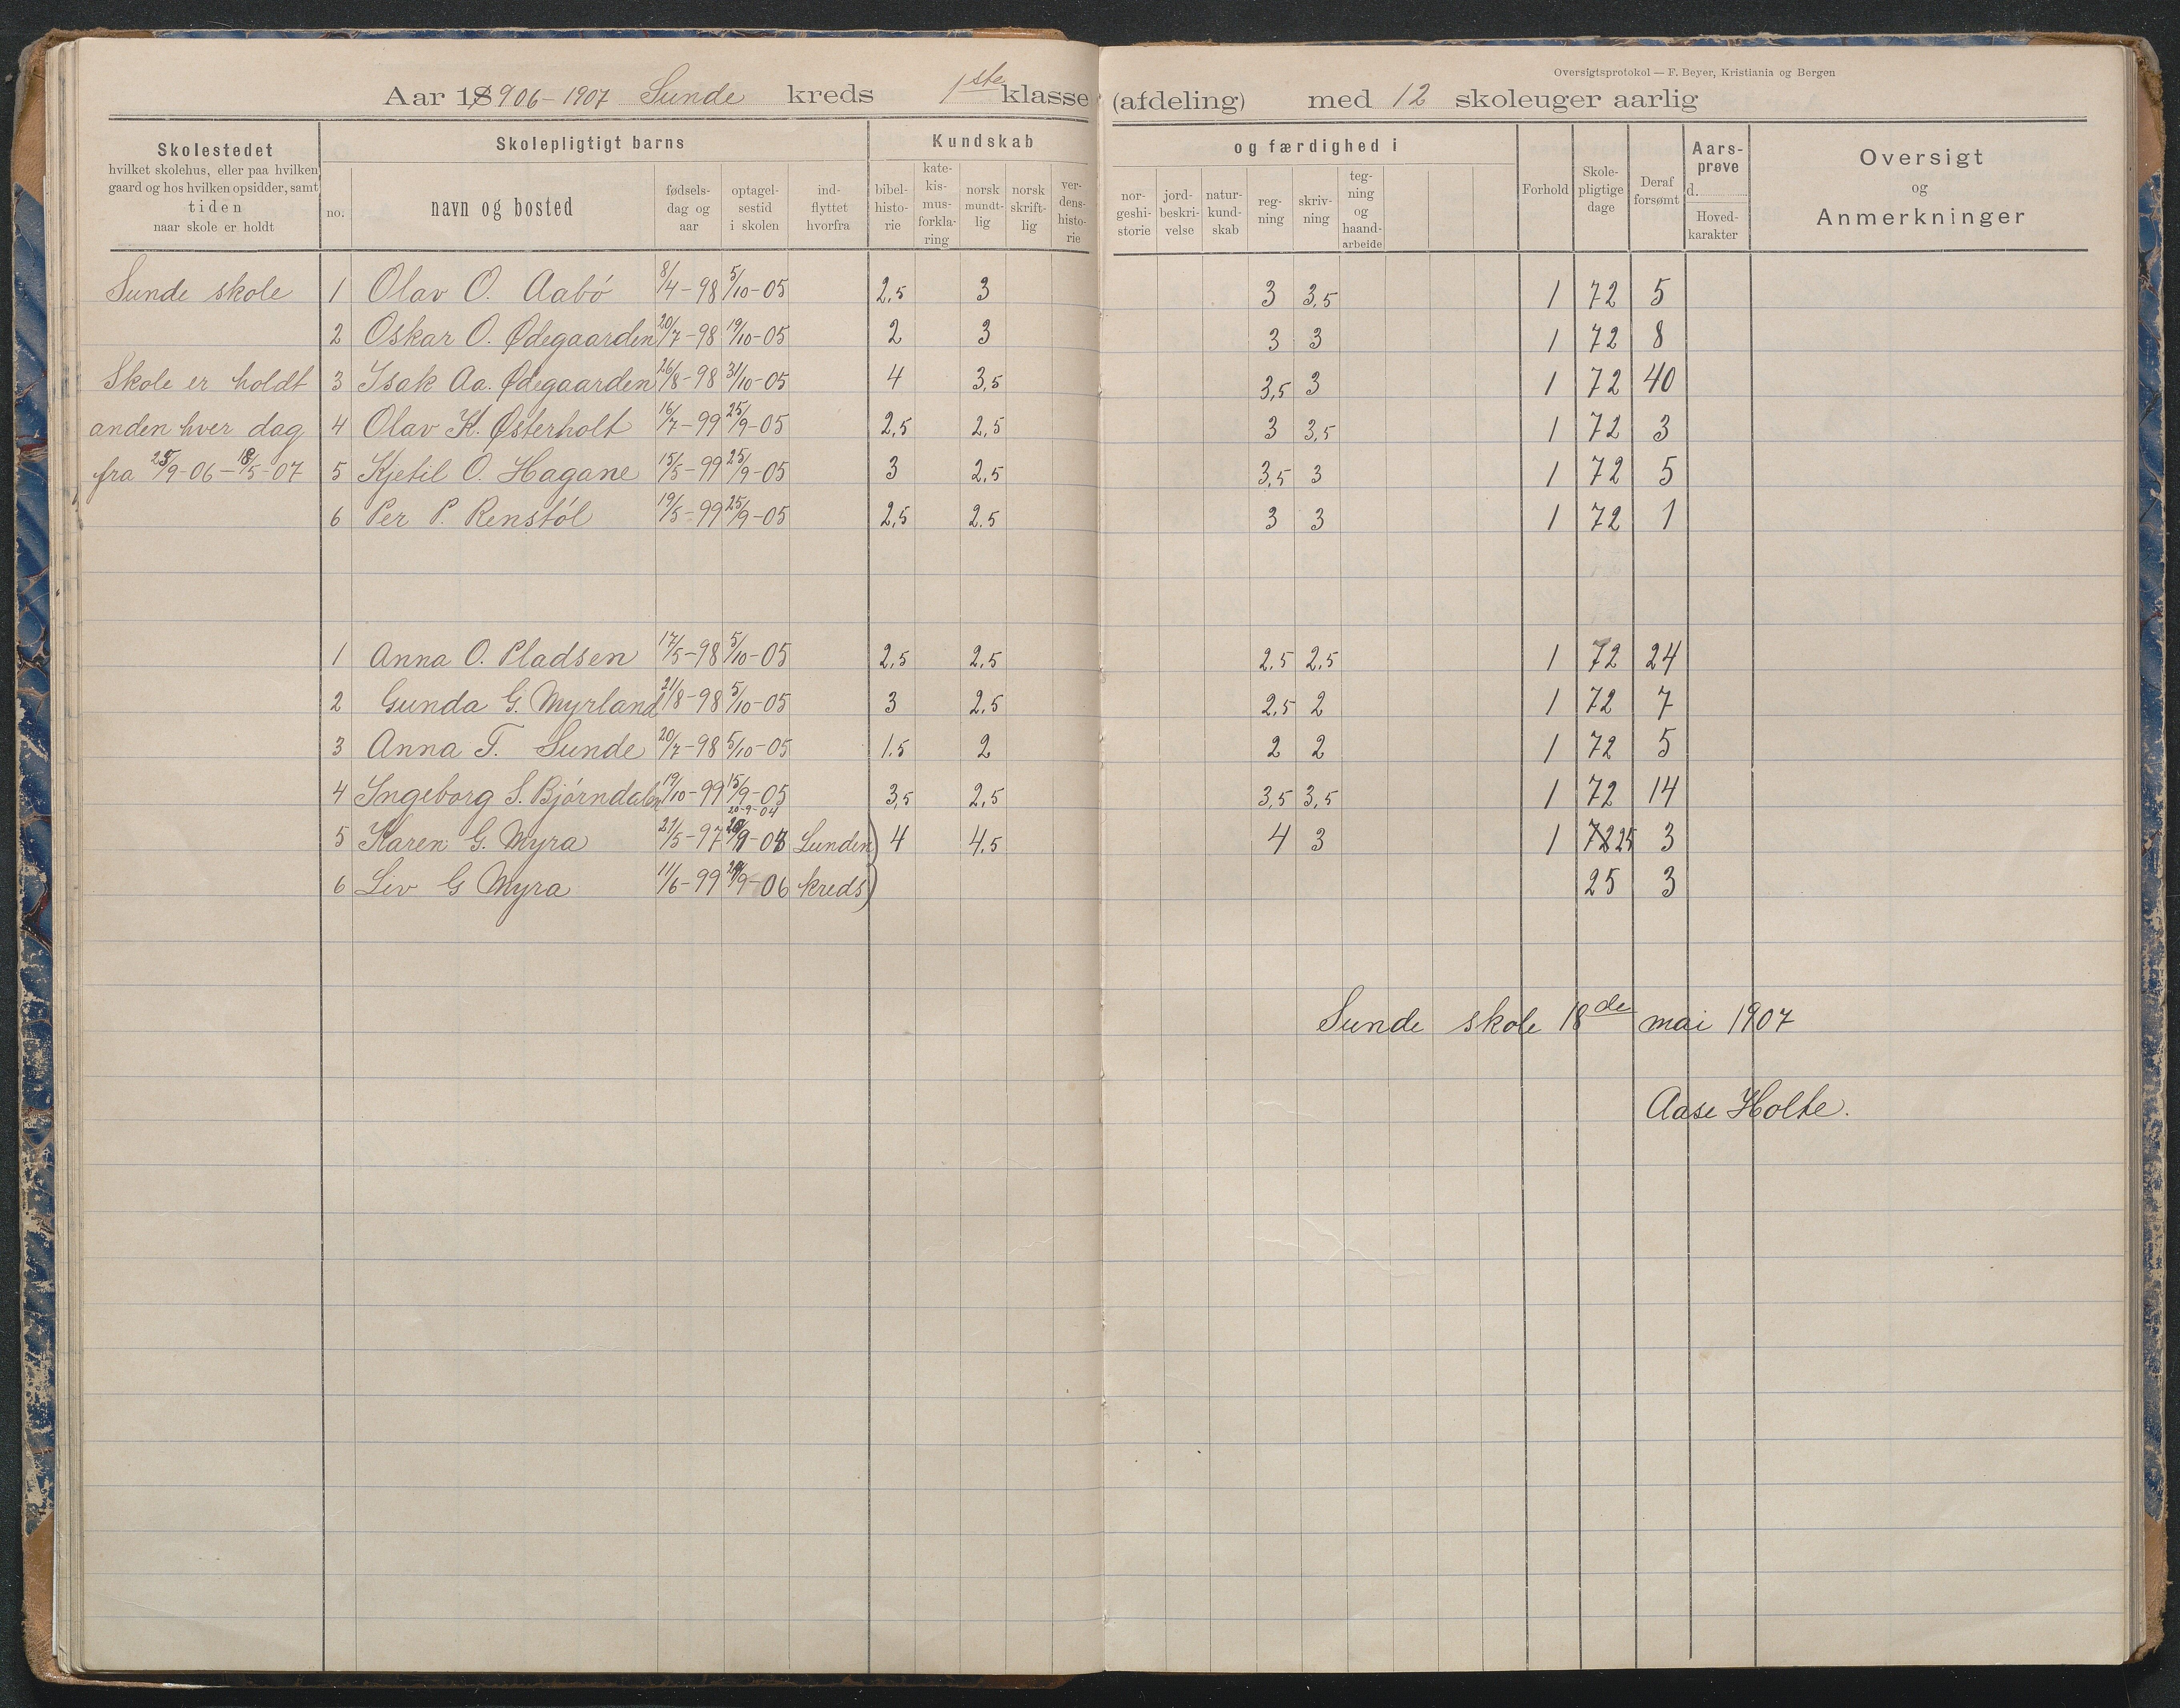 Oversigtsprotokol — F. Beyer, Kristiania og Bergen
Aar 18906-1907 Sunde kreds 1ste klasse (afdeling) med 12 skoleuger aarlig
Skolestedet
hvilket skolehus, eller paa hvilken
gaard og hos hvilken opsidder, samt
tiden
naar skole er holdt
Skolepligtigt barns
no.
navn og bosted
fødsels-
dag og
aar
optagel-
sestid
i skolen
ind-
flyttet
hvorfra
Kundskab
bibel-
histo-
rie
kate-
kis-
mus-
forkla-
ring
norsk
mundt-
lig
norsk
skrift-
lig
ver-
dens-
histo-
rie
og færdighed i
nor-
geshi-
storie
jord-
beskri-
velse
natur-
kund-
skab
reg-
ning
skriv-
ning
teg-
ning
og
haand-
arbeide
Forhold
Skole-
pligtige
dage
Deraf
forsømt
Aars-
prøve
d.
Hoved-
karakter
Oversigt
og
Anmerkninger
Sunde skole 1 Olav O. Aabö 8/4-98 5/10-05 2,5 3 3 3,5 1 72 5
2 Oskar O. Ødegaarden 20/7-98 19/10-05 2 3 3 3 1 72 8
Skole er holdt 3 Isak Aa. Ødegaarden 26/8-98 31/10-05 4 3,5 3,5 3 1 72 40
anden hver dag 4 Olav K. Østerholt 16/7-99 25/9-05 2,5 2,5 3 3,5 1 72 3
fra 25/9-06-18/5-07 5 Kjetil O. Hagane 15/5-99 25/9-05 3 2,5 3,5 3 1 72 5
6 Per P. Renstöl 19/5-99 25/9-05 2,5 2.5 3 3 1 72 1
1 Anna O. Pladsen 17/5-98 5/10-05 2,5 2,5 2.5 2,5 1 72 24
2 Gunda G. Myrland 21/8-98 5/10-05 3 2,5 2,5 2 1 72 7
3 Anna T. Sunde 20/7-98 5/10-05 1.5 2 2 2 1 72 5
4 Ingeborg S. Bjørndalen 19/10-99 15/9-05 3,5 2,5 3,5 3,5 1 72 14
20-9-04
5 Karen G. Myra 21/5-97 Lunden 4 4,5 4 3 1 72 25 3
6 Liv G Myra 11/6-99 /9-06 kreds) 25 3
Sunde skole 18de mai 1907
Aase Holte.